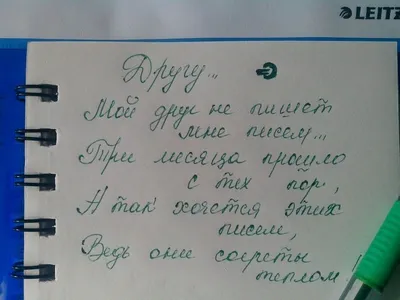 LEITZ
Другу...
Мой друг не пишет
мне писем...
Три месяца прошло
с тех пор,
А так хочется этих
писем,
Ведь они согреты
теплом